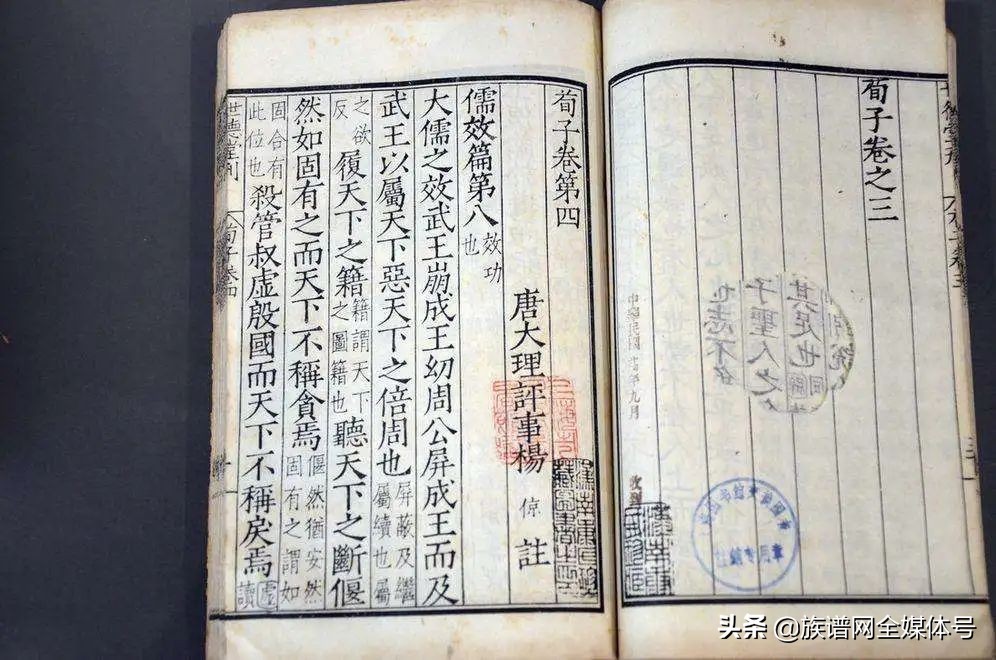 荀子卷之三
中華民國
年九月
收到
荀子卷第四
唐大理評事楊倞註
儒效篇第八效功也
大儒之效武王崩成王幼周公屏成王而及
武王以屬天下惡天下之倍周也屏蔽及繼屬續也屬
之欲反履天下之籍籍謂天下之圖籍也聽天下之斷偃
然如固有之而天下不稱貪焉偃然猶安然固有之謂如
固合有此位也殺管叔虛殷國而天下不稱戾焉虛讀
世德堂刊
荀子卷四
头条 @族谱网全媒体号